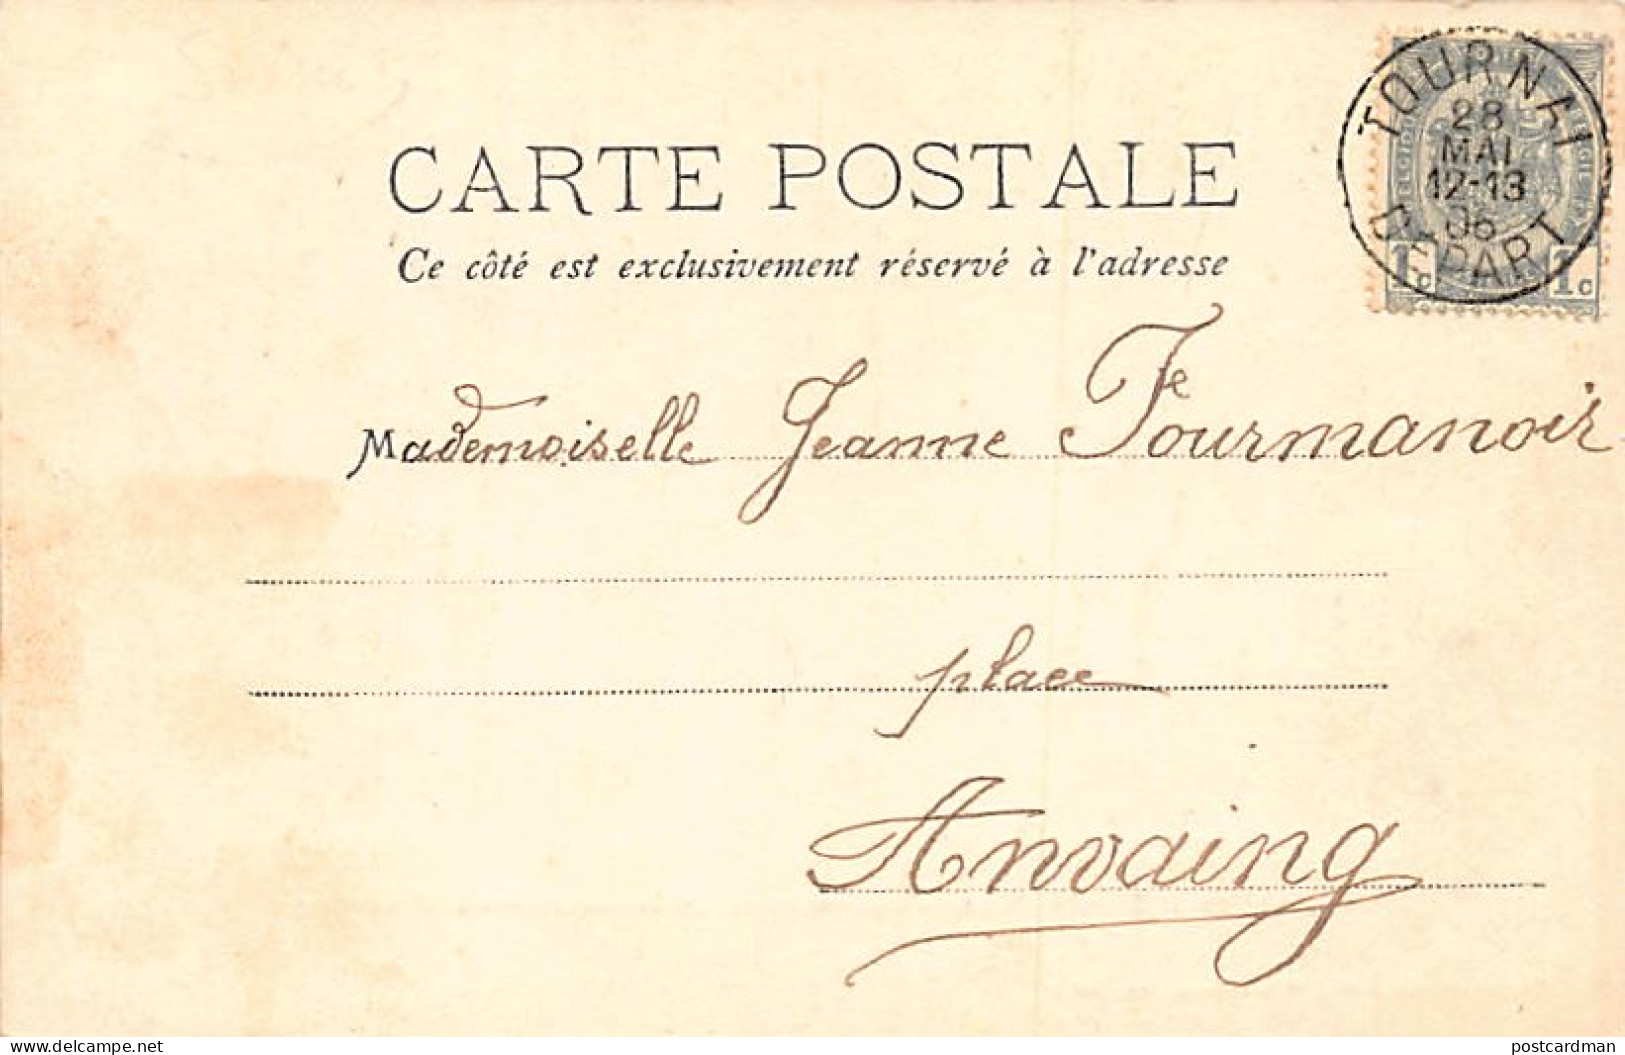 TOURNAI
28
MAI
12-13
06
DEPART
1c 1c
CARTE POSTALE
Ce côté est exclusivement réservé à l'adresse
Mademoiselle Jeanne Fourmanoir
place
Anvaing
delcampe.net
postcardman